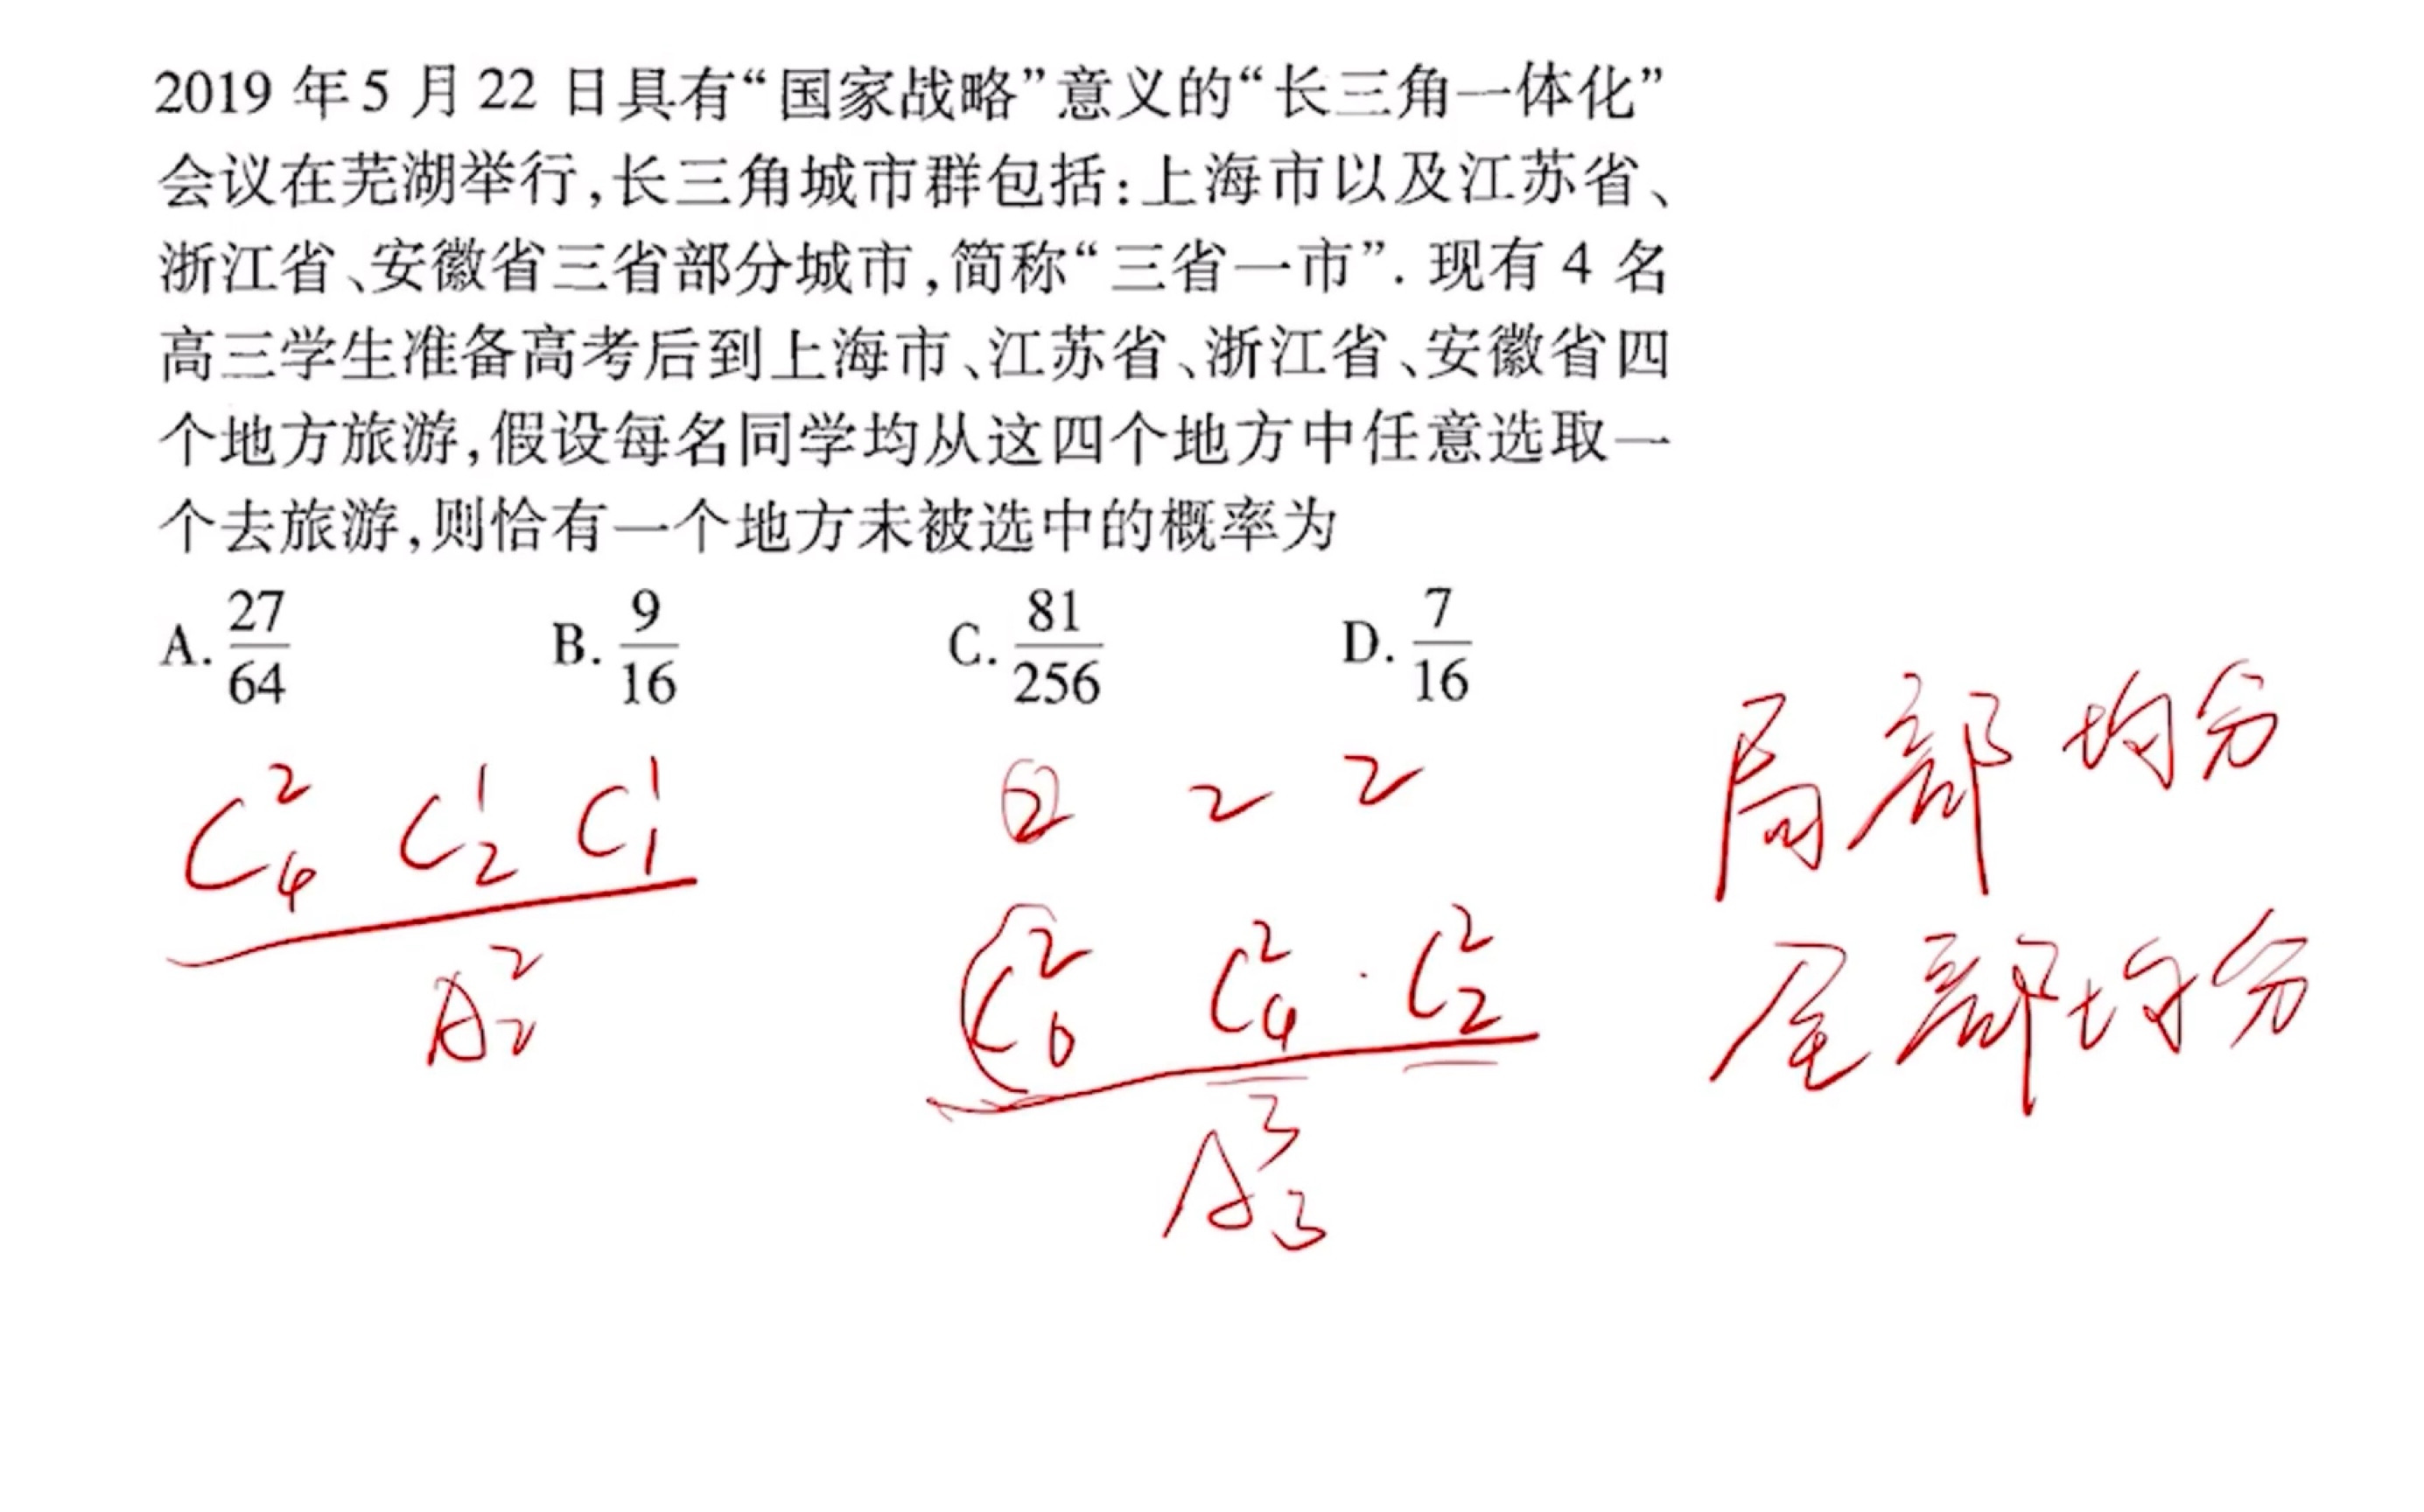 2019 年 5 月 22 日具有“国家战略”意义的“长三角一体化”
会议在芜湖举行,长三角城市群包括:上海市以及江苏省、
浙江省、安徽省三省部分城市,简称“三省一市”. 现有 4 名
高三学生准备高考后到上海市、江苏省、浙江省、安徽省四
个地方旅游,假设每名同学均从这四个地方中任意选取一
个去旅游,则恰有一个地方未被选中的概率为
A. 27/64 B. 9/16 C. 81/256 D. 7/16
局部均分
2 2 2
C₄² C₂¹ C₁¹
A₂²
C₆² C₄² · C₂²
A₃³
全部均分